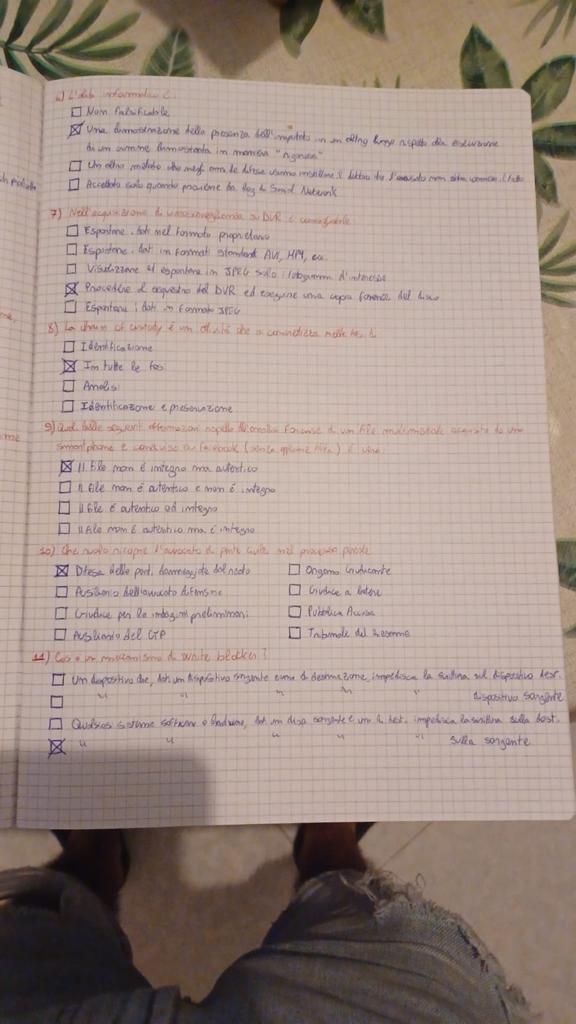 6) L'dato informatico è:
☐ Non falsificabile
☒ Una dimostrazione della presenza dell'imputato in un altro luogo rispetto alla esecuzione
di un crimine dimostrata in maniera "rigorosa"
☐ Un altro metodo che negli anni le difese usano instillare il dubbio che l'accusato non abbia commesso il fatto
☐ Accettato solo quando proviene da log di Social Network
7) Nell'acquisizione di videosorveglianza su DVR è consigliabile
☐ Esportare i dati nel formato proprietario
☐ Esportare i dati in formati standard AVI, MP4, ecc.
☐ Visualizzare ed esportare in JPEG solo i fotogrammi d'interesse
☒ Procedere al sequestro del DVR ed eseguire una copia forense del disco
☐ Esportare i dati in formato JPEG
8) La chain of custody è un attività che si concretizza nelle fasi di
☐ Identificazione
☒ In tutte le fasi
☐ Analisi
☐ Identificazione e preservazione
9) Quali delle seguenti affermazioni rispetto all'analisi forense di un file multimediale acquisito da uno
smartphone e condiviso su facebook ( ) è vera:
☒ Il file non è integro ma autentico
☐ Il file non è autentico e non è integro
☐ Il file è autentico ed integro
☐ Il file non è autentico ma è integro
10) Che ruolo ricopre l'avvocato di parte civile nel processo penale
☒ Difesa della parti danneggiate dal reato
☐ Organo Giudicante
☐ Ausiliario dell'avvocato difensore
☐ Giudice a latere
☐ Giudice per le indagini preliminari
☐ Pubblica Accusa
☐ Ausiliario del CTP
☐ Tribunale del Riesame
11) Cos'è un meccanismo di write blocker?
☐ Un dispositivo che, dati un dispositivo sorgente e uno di destinazione, impedisca la scrittura sul dispositivo dest.
☐ " " " " " dispositivo sorgente
☐ Qualsiasi sistema software o hardware, dati un disp. sorgente e uno di dest. impedisca la scrittura sulla dest.
☒ " " " " " sulla sorgente